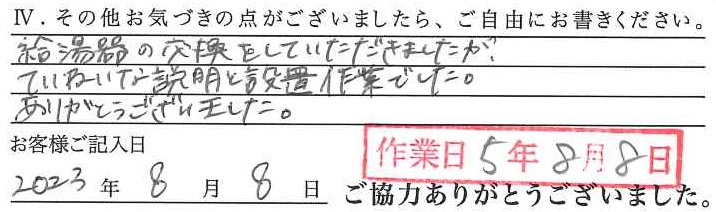 Ⅳ．その他お気づきの点がございましたら、ご自由にお書きください。
給湯器の交換をしていただきましたが、
ていねいな説明と設置作業でした。
ありがとうございました。
お客様ご記入日
作業日 5年8月8日
2023年 8月 8日 ご協力ありがとうございました。